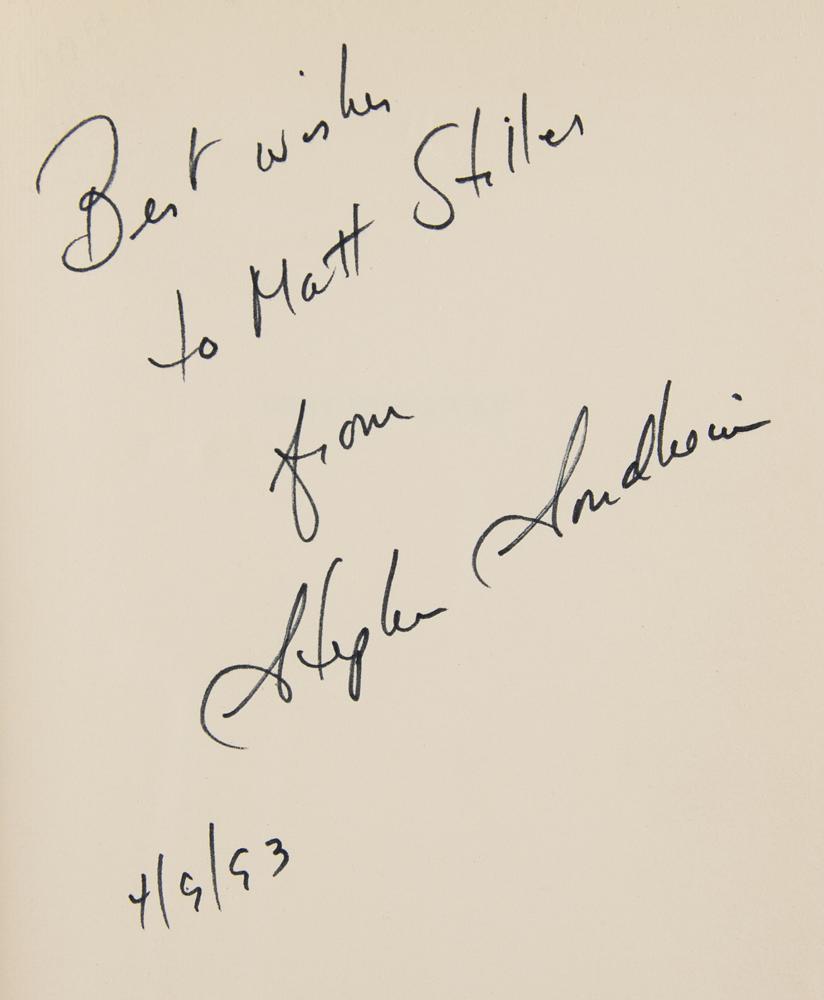 Best wishes
to Matt Stiller
from
Stephen Sondheim
4/9/93